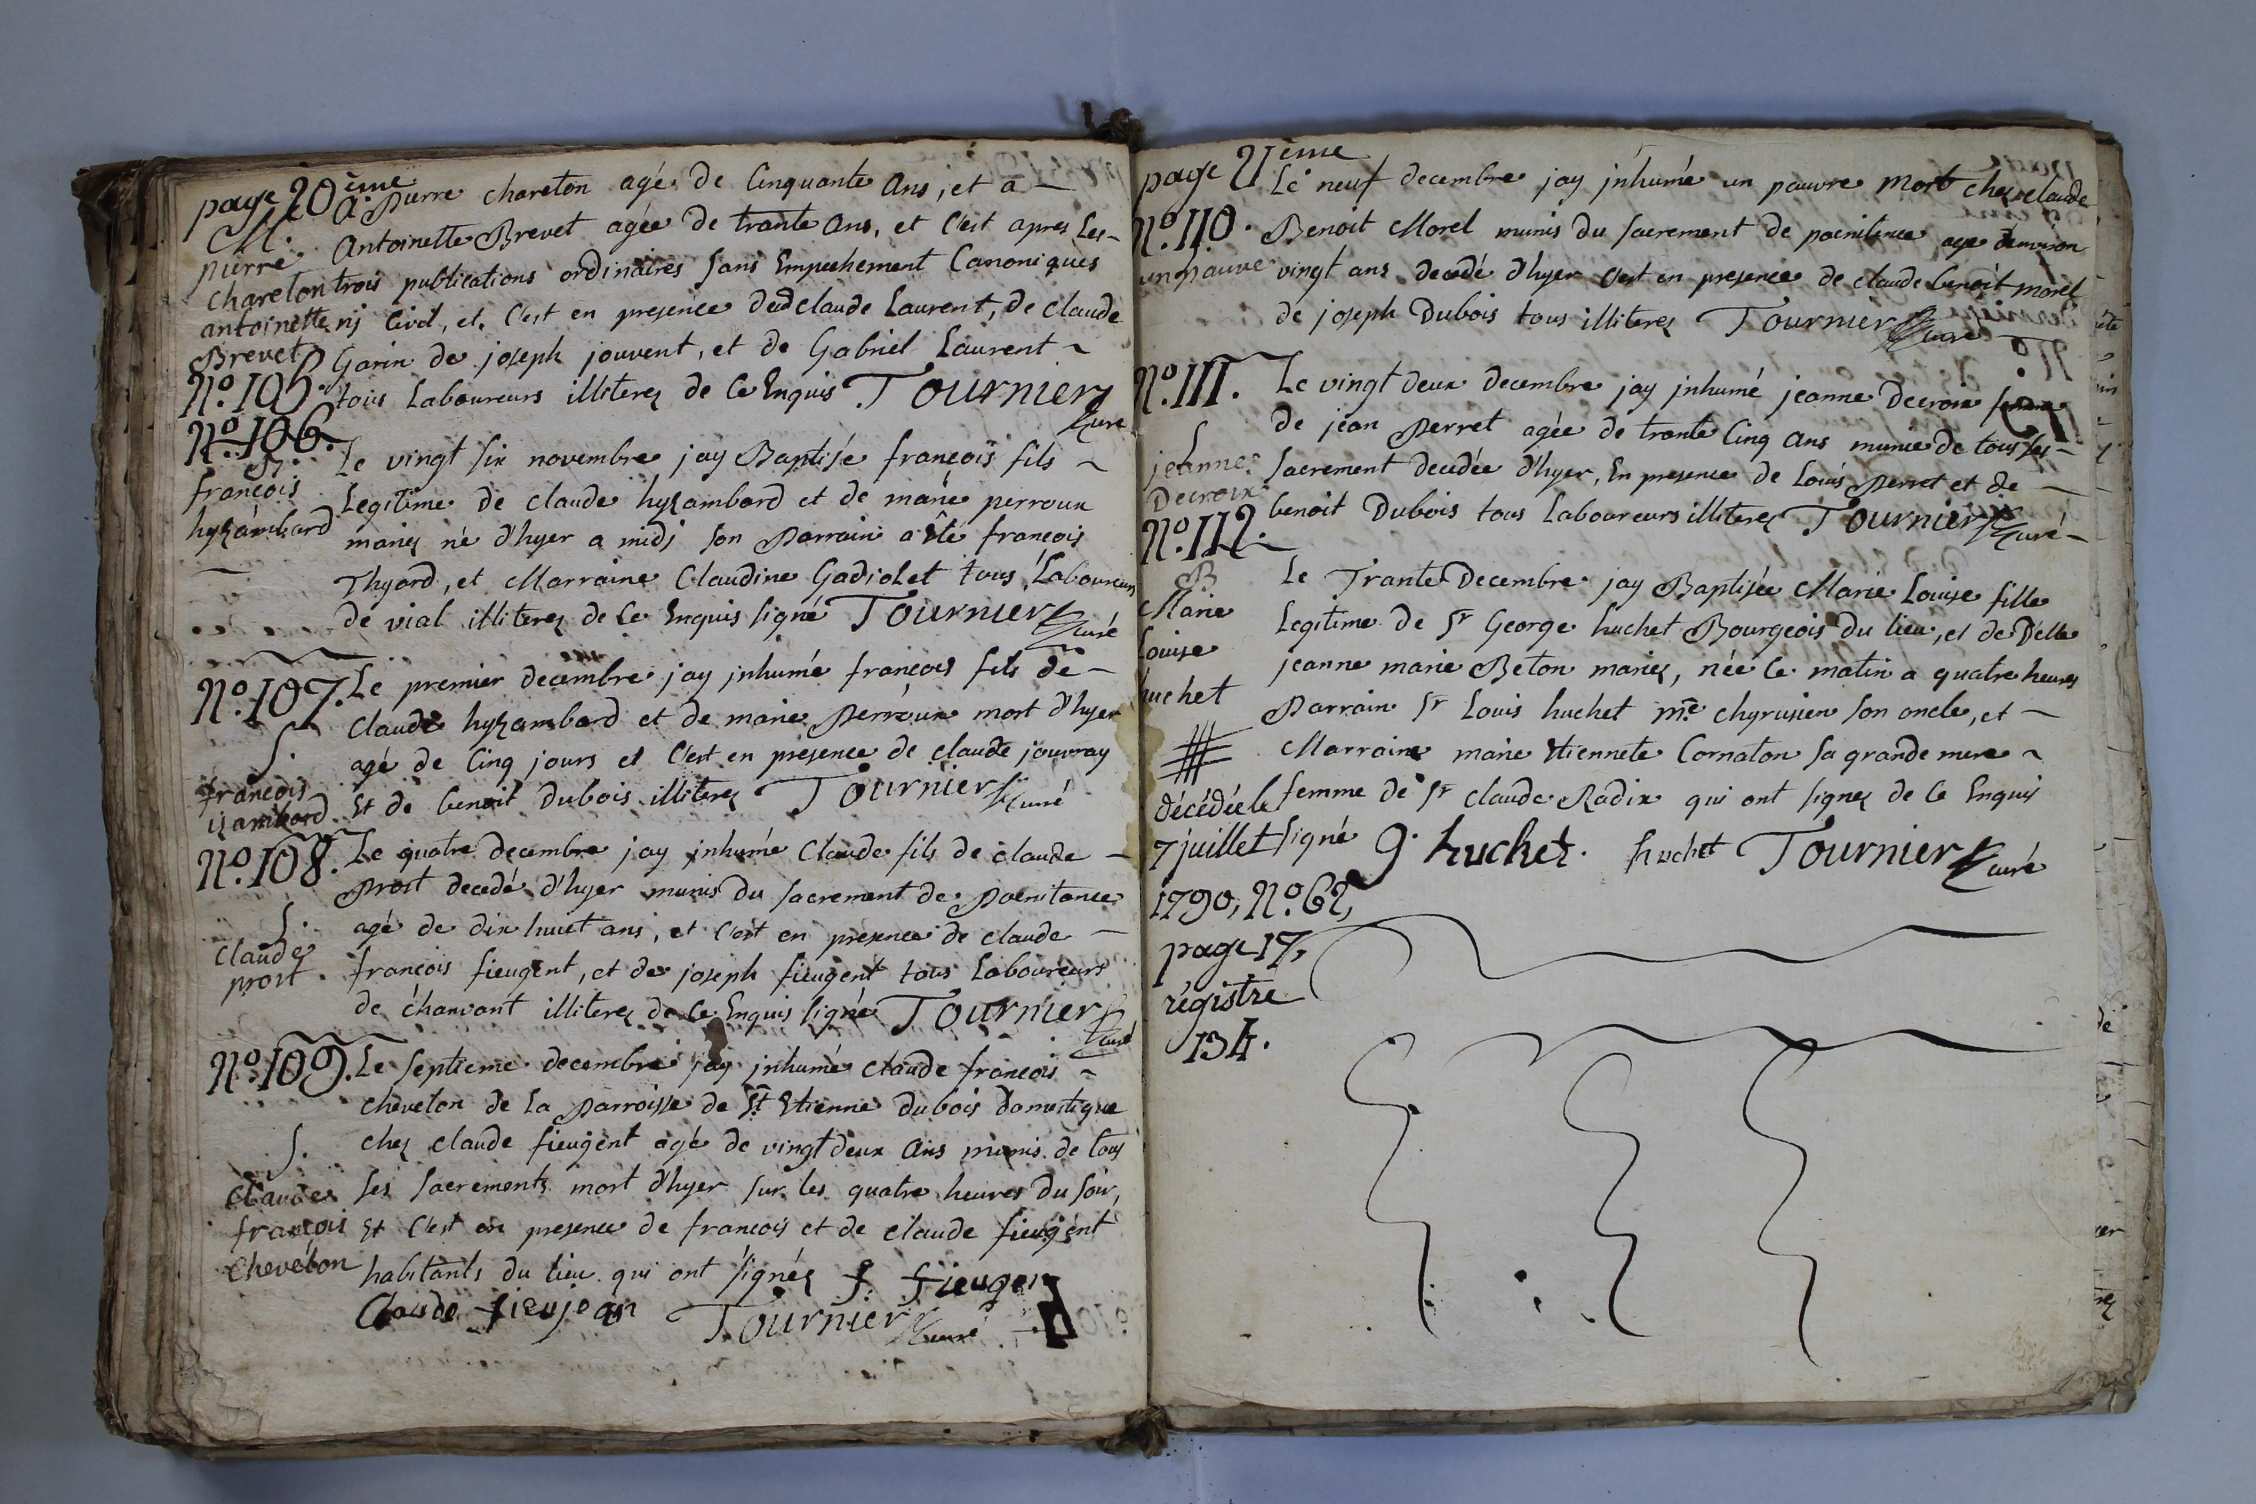 page 20ème
M.
pierre
chareton
antoinette
Brevet
N.º 105.
a Pierre chareton agé de Cinquante Ans, et a
Antoinette Brevet agée de trante Ans, et C'est apres Les
trois publications ordinaires sans Empechement Canoniques
nj Civil, et C'est en presence de claude Laurent, de Claude
Garin de joseph jouvent, et de Gabriel Laurent
tous Laboureurs illiterez de Ce Enquis Tournier
Curé
N.º 106.
B.
françois
hyzambard
Le vingt six novembre jay Baptisé françois fils
Legitime de claude hyzambard et de marie perroux
mariez né d'hyer a midj son Parrain a été françois
Thyard, et Marraine Claudine Gadiolet tous Laboureurs
de vial illiterez de Ce Enquis signé Tournier Curé
N.º 107.
S.
françois
izambard
Le premier decembre jay jnhumé françois fils de
Claude hyzambard et de marie Perroux mort d'hyer
agé de Cinq jours et C'est en presence de claude jouvray
Et de benoit Dubois illiterez Tournier Curé
N.º 108.
S.
claude
prost
Le quatre decembre jay jnhumé Claude fils de claude
Prost decedé d'hyer munis du sacrement de Poenitance
agé de dix huit ans, et C'est en presence de claude
françois fieugent, et de joseph fieugent tous Laboureurs
de chanvant illiterez de Ce Enquis signé Tournier
Curé
N.º 109.
S.
Claude
françois
Chevéton
Le septieme decembre jay jnhumé claude francois
cheveton de La Parroisse de St Etienne Dubois Domestique
chez claude fieugent agé de vingt deux Ans munis de tous
ses sacrements mort d'hyer sur les quatre heures du soir,
Et C'est en presence de francois et de claude fieugent
habitants du lieu qui ont signéz f. fieugen
Claude fieujean Tournier Curé
page 21ème
N.º 110.
un pauvre
Le neuf decembre jay jnhumé un pauvre mort chez claude
Benoit Morel munis du sacrement de poenitence agé d'environ
vingt ans decedé d'hyer C'est en presence de claude benoit morel
de joseph Dubois tous illiterez Tournier Curé
N.º 111.
S
jeanne
Decroix
Le vingt deux decembre jay jnhumé jeanne Decroix femme
de jean Perret agée de trante Cinq Ans munie de tous ses
sacrement decedée d'hyer, En presence de Louis Perret et de
benoit Dubois tous Laboureurs illiterez Tournier Curé
N.º 112.
B
Marie
Louise
huchet
décédée le
7 juillet
1790, N.º 62,
page 17,
régistre
134.
Le Trante Decembre jay Baptisée Marie Louise fille
Legitime de Sr George huchet Bourgeois du lieu, et de Delle
jeanne marie Beton mariez, née Ce matin a quatre heures
Parrain Sr Louis huchet me chyrurien son oncle, et
Marraine marie Etiennete Cornaton sa grande mere
femme de Sr claude Radix qui ont signez de Ce Enquis
signé g. huchet. huchet Tournier Curé